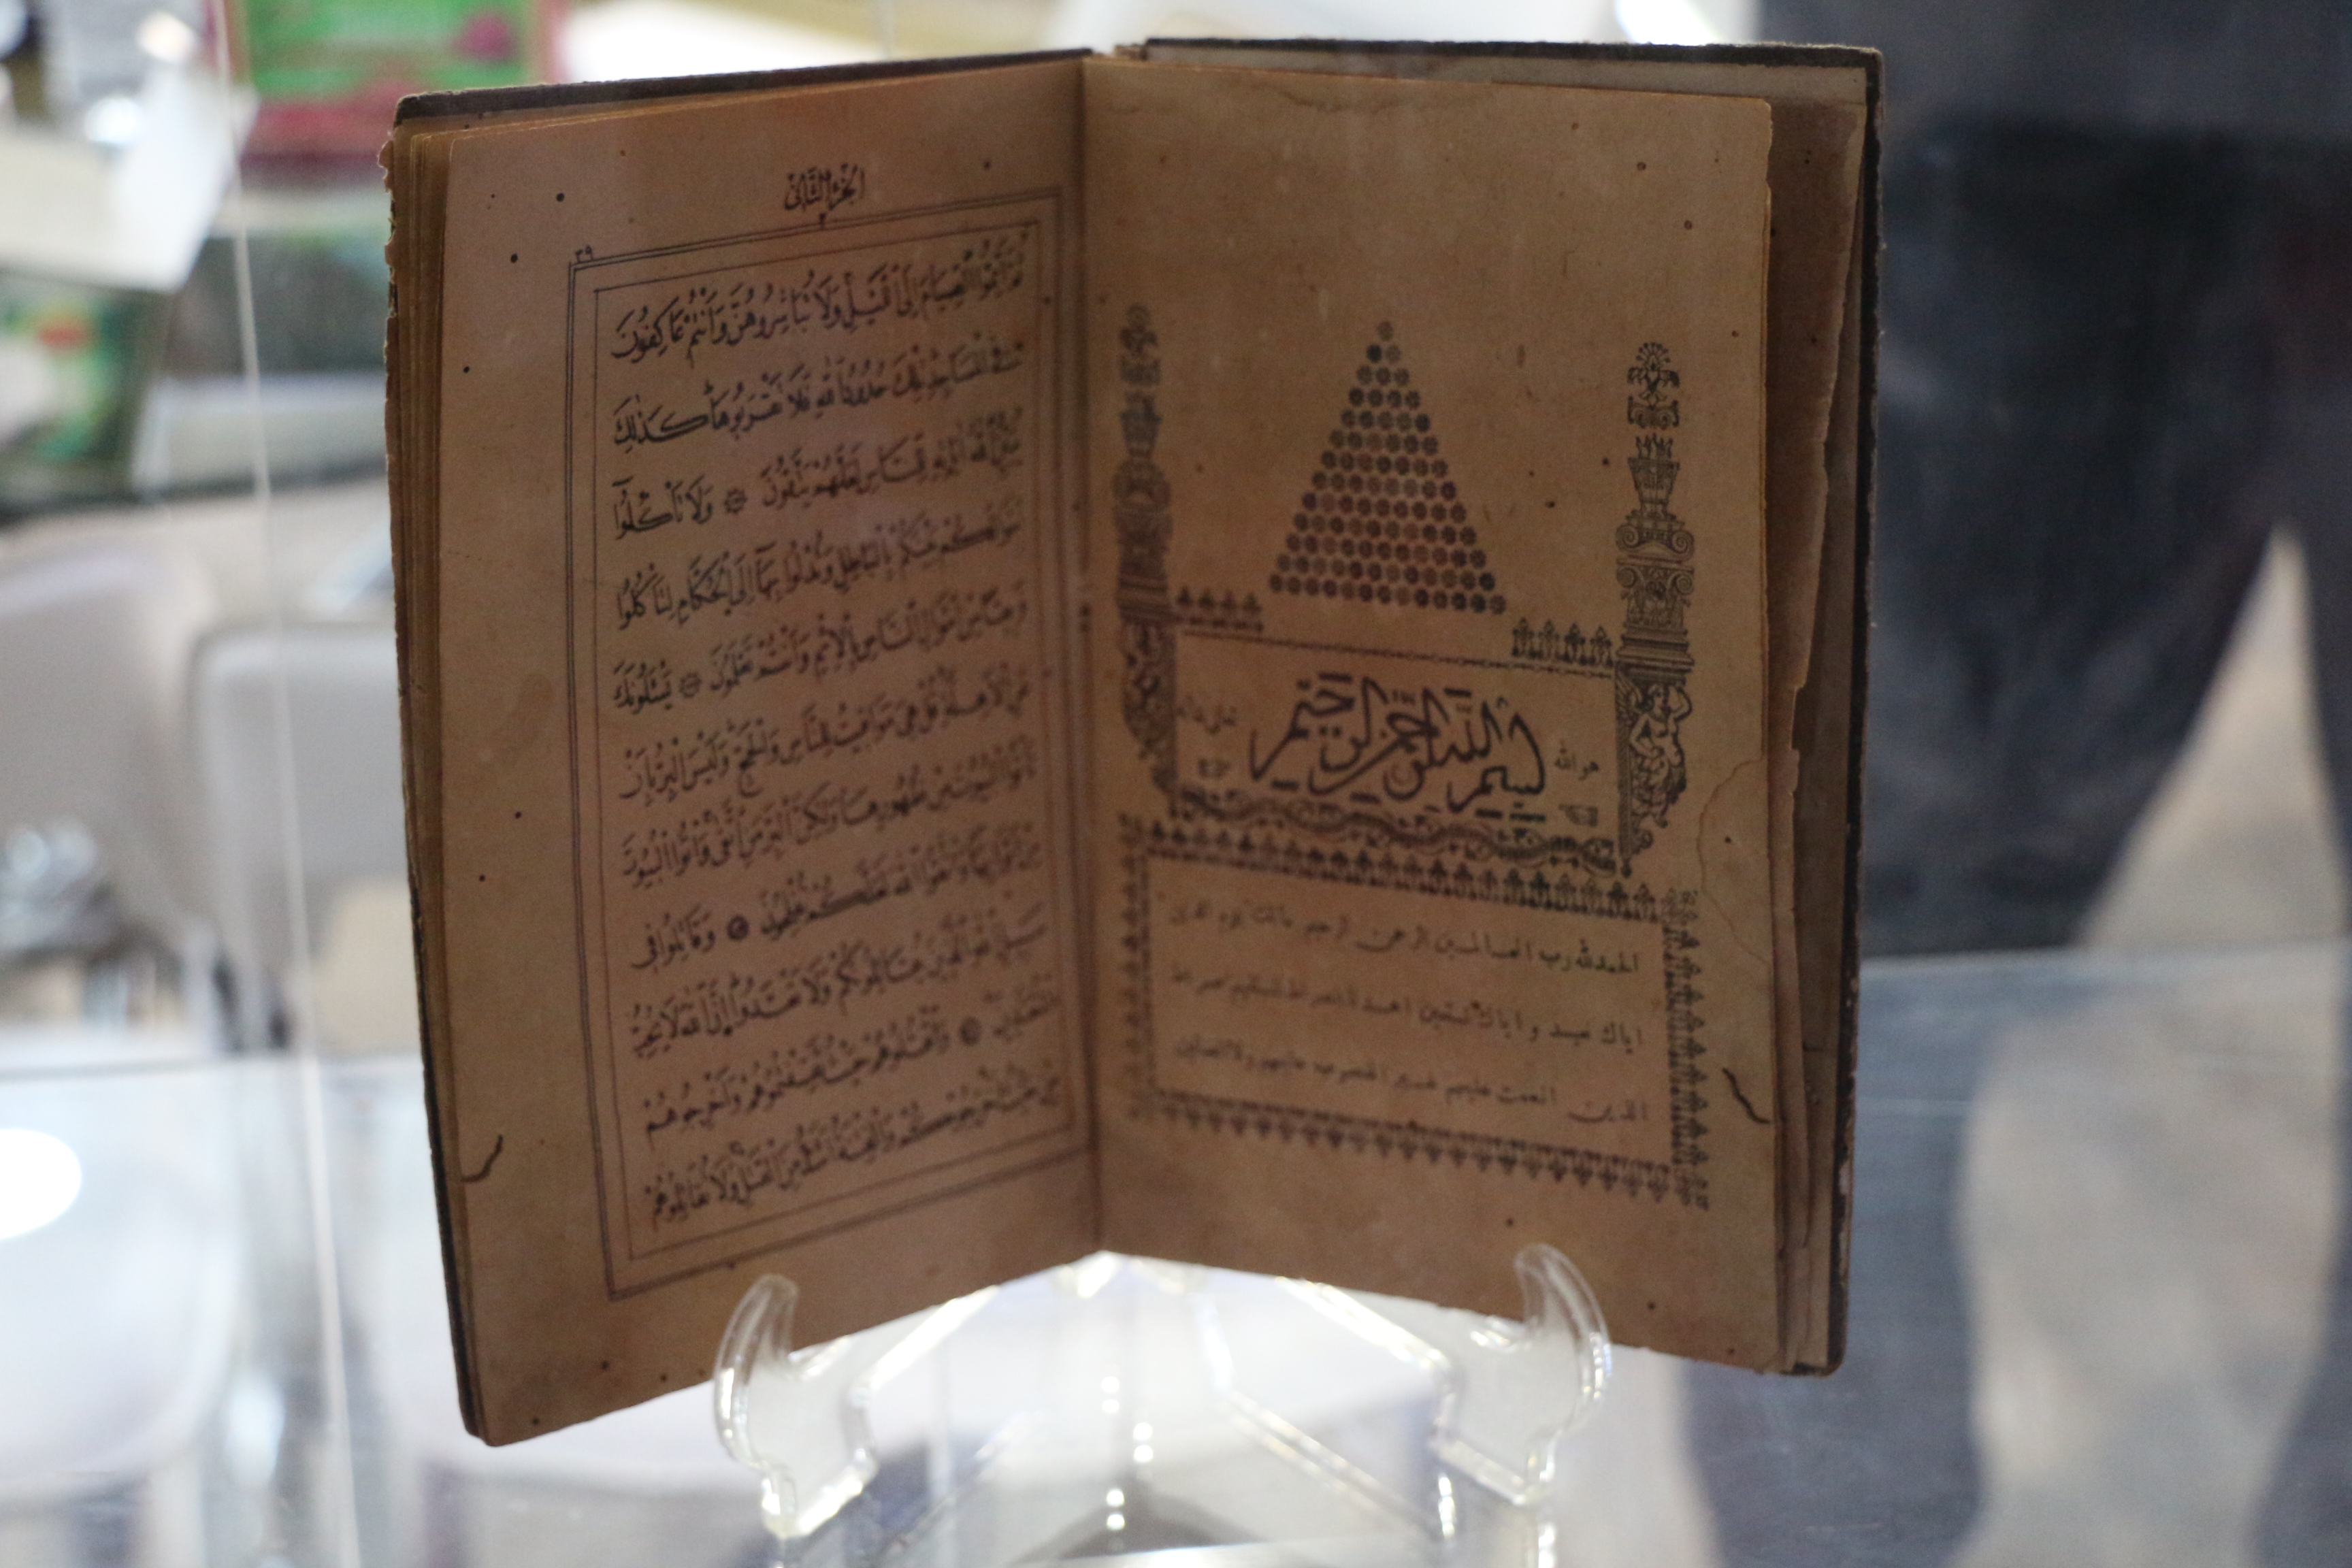 هو الله
بسم الله الرحمن الرحيم
الحمد لله رب العالمين الرحمن الرحيم مالك يوم الدين
اياك نعبد و اياك نستعين اهدنا الصراط المستقيم صراط
الذين انعمت عليهم غير المغضوب عليهم ولا الضالين
الجزء الثاني
٣٩
ثُمَّ أَتِمُّوا الصِّيَامَ إِلَى اللَّيْلِ وَلَا تُبَاشِرُوهُنَّ وَأَنْتُمْ عَاكِفُونَ
فِي الْمَسَاجِدِ تِلْكَ حُدُودُ اللَّهِ فَلَا تَقْرَبُوهَا كَذٰلِكَ
يُبَيِّنُ اللَّهُ اٰيَاتِهِ لِلنَّاسِ لَعَلَّهُمْ يَتَّقُونَ وَلَا تَأْكُلُوا
أَمْوَالَكُمْ بَيْنَكُمْ بِالْبَاطِلِ وَتُدْلُوا بِهَا إِلَى الْحُكَّامِ لِتَأْكُلُوا
فَرِيقًا مِنْ أَمْوَالِ النَّاسِ بِالْإِثْمِ وَأَنْتُمْ تَعْلَمُونَ يَسْئَلُونَكَ
عَنِ الْأَهِلَّةِ قُلْ هِيَ مَوَاقِيتُ لِلنَّاسِ وَالْحَجِّ وَلَيْسَ الْبِرُّ بِأَنْ
تَأْتُوا الْبُيُوتَ مِنْ ظُهُورِهَا وَلٰكِنَّ الْبِرَّ مَنِ اتَّقَى وَأْتُوا الْبُيُوتَ
مِنْ أَبْوَابِهَا وَاتَّقُوا اللَّهَ لَعَلَّكُمْ تُفْلِحُونَ وَقَاتِلُوا فِي
سَبِيلِ اللَّهِ الَّذِينَ يُقَاتِلُونَكُمْ وَلَا تَعْتَدُوا إِنَّ اللَّهَ لَا يُحِبُّ
الْمُعْتَدِينَ وَاقْتُلُوهُمْ حَيْثُ ثَقِفْتُمُوهُمْ وَأَخْرِجُوهُمْ
مِنْ حَيْثُ أَخْرَجُوكُمْ وَالْفِتْنَةُ أَشَدُّ مِنَ الْقَتْلِ وَلَا تُقَاتِلُوهُمْ